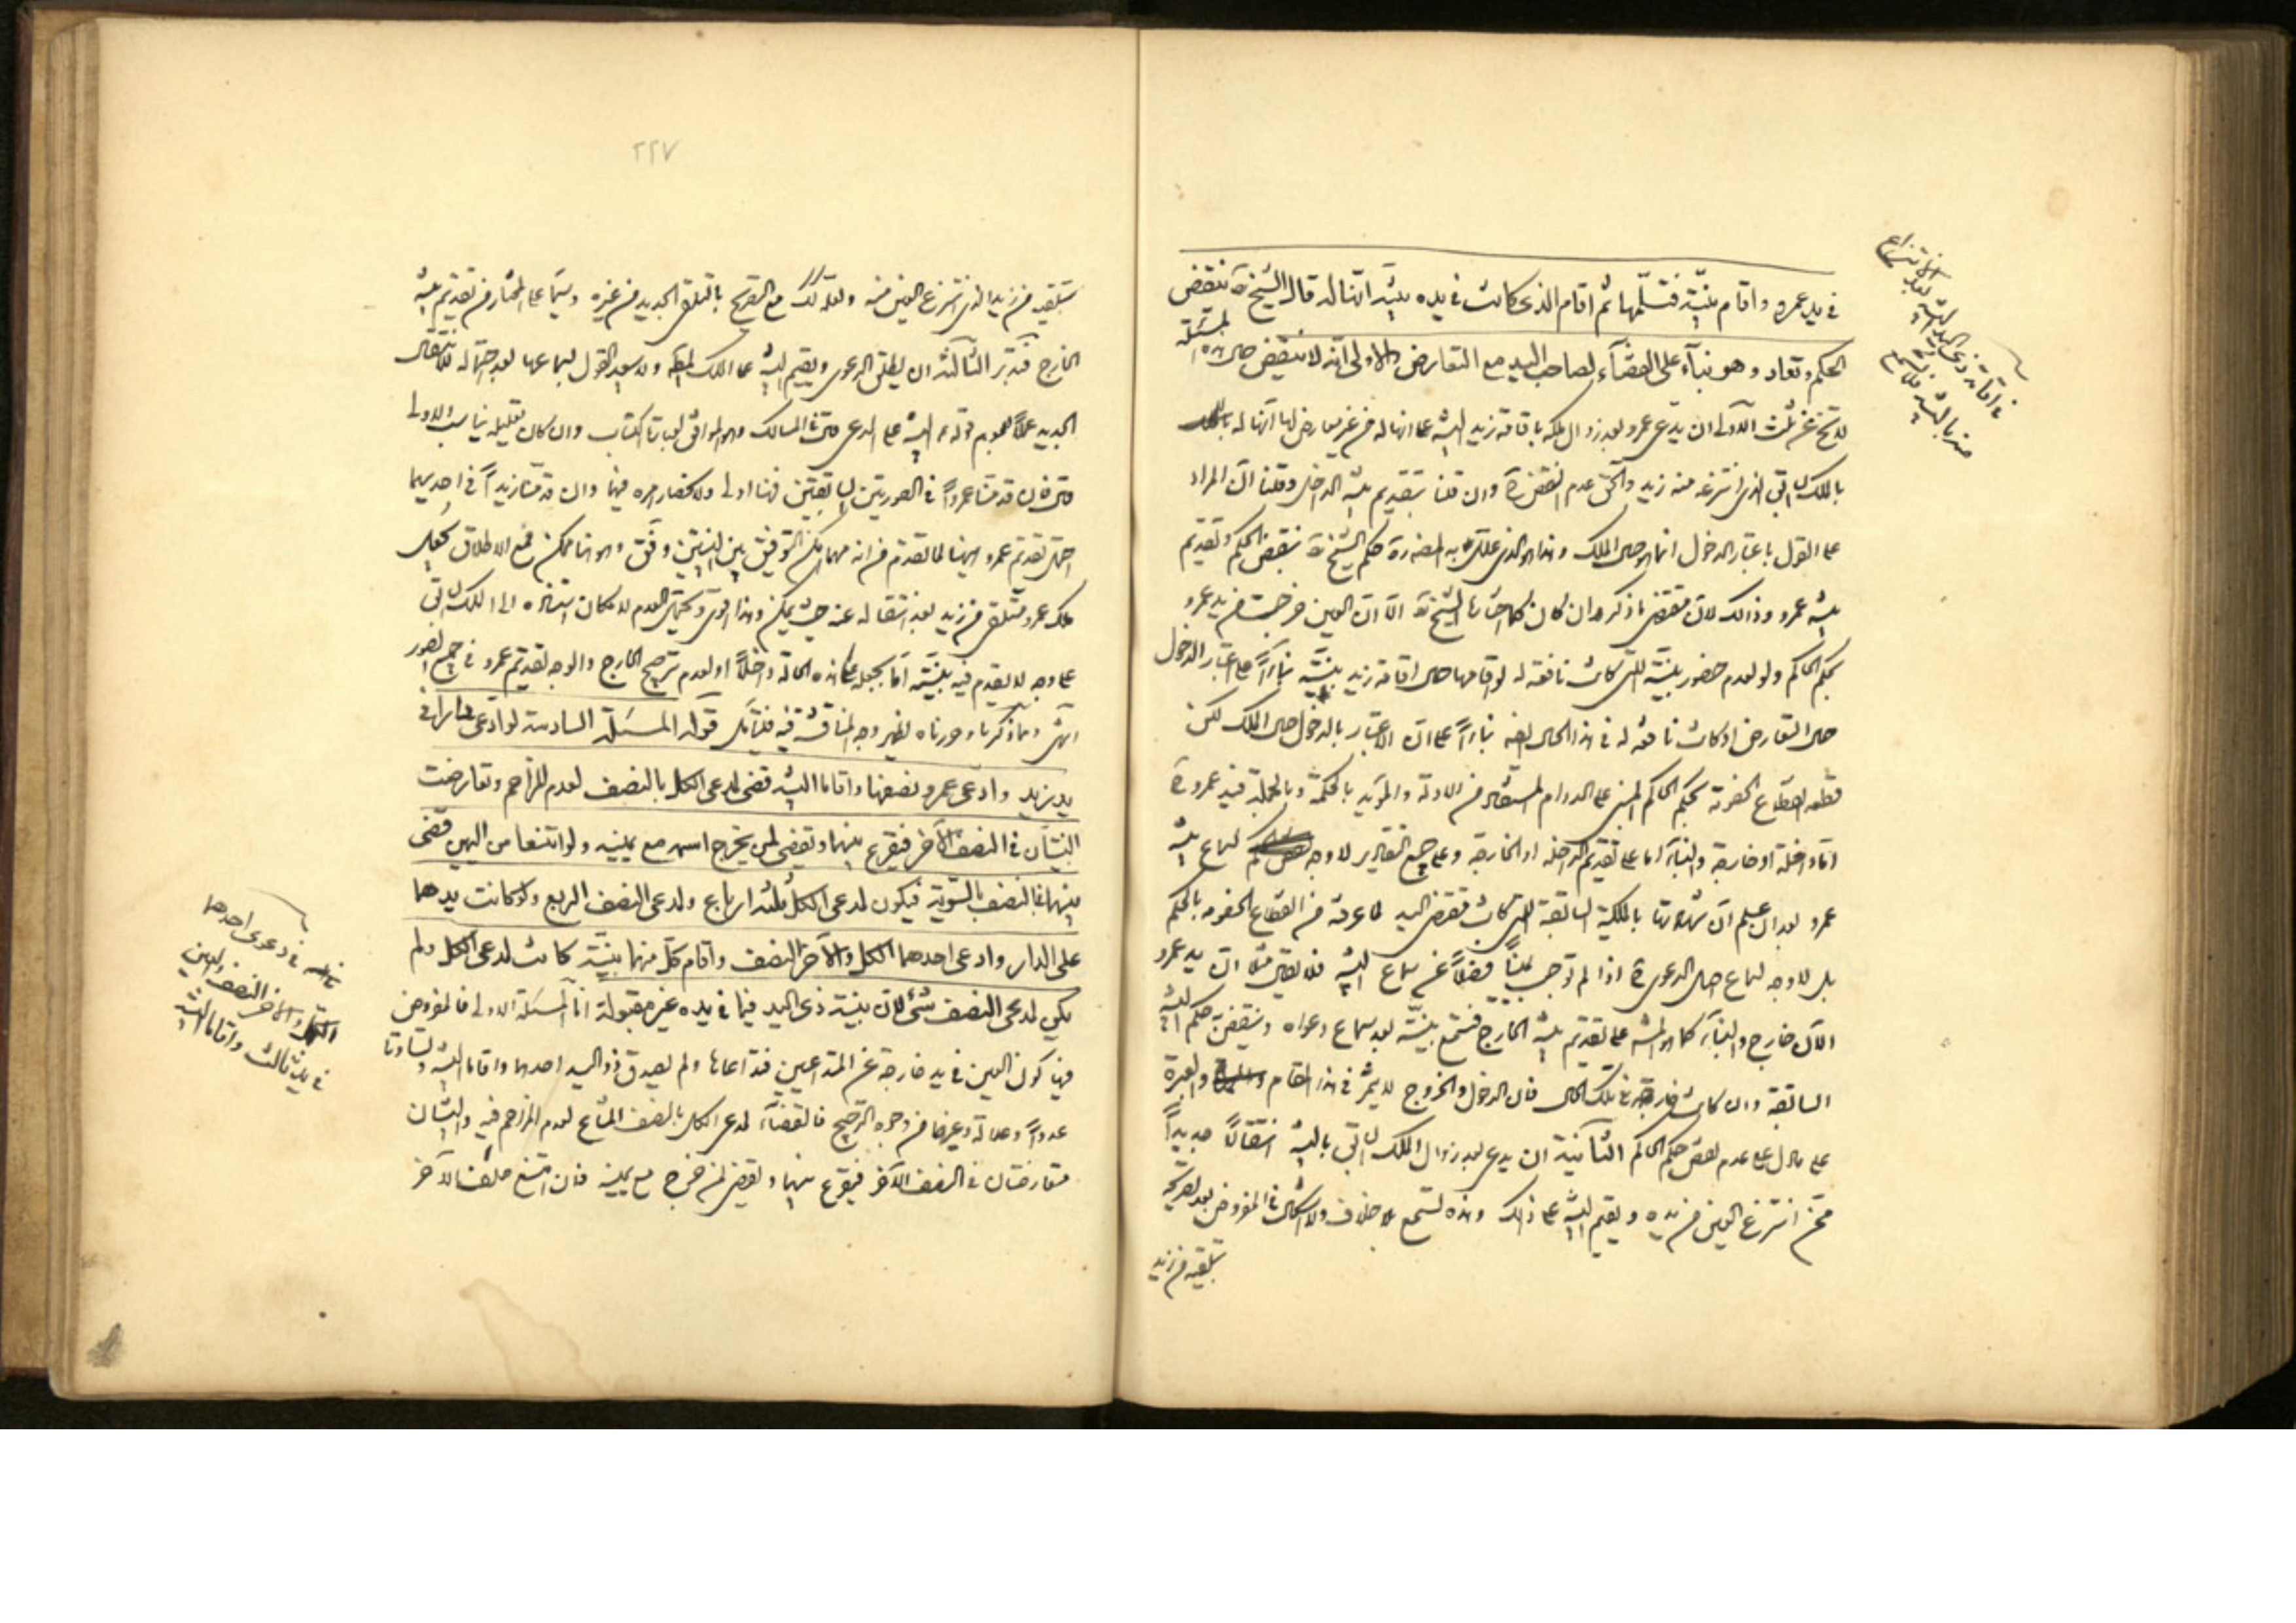 في يد عمرو واقام بينة فتسلّمها ثم اقام الذى كانت في يده بينة انّها له قال الشيخ ره ينقض
الحكم وتعاد وهو بناء على القضاء لصاحب اليد مع التعارض والاولى انه لا ينقض
ان يدعى عمرو بعد زوال ملكه باقامة زيد البينة على انها له من غير معارض لها انها له
بالملك السابق الذى انتزعه منه زيد والحق عدم النقض وان قلنا بتقديم بينة الداخل وقلنا ان المراد
على القول باعتبار الدخول انما هو حال الملك وهذا هو الذى حكم الشيخ ره بنقض الحكم وتقديم
بينة عمرو وذالك لان مقتضى ما ذكر وان كان كما اختاره الشيخ ره الا ان العين خرجت من يد عمرو
بحكم الحاكم ولو لعدم حضور بينته التى كانت نافعة له لو اقامها حال اقامة زيد بينته بناء على اعتبار الدخول
حال التعارض او كانت نافعة له في هذا الحال ايضا بناء على ان الاعتبار بالدخول حال الملك لكن
بحكم الحاكم المبنى على الدوام المستفاد من الادلة والمؤيد بالحكمة وبالجملة فبينة عمرو
اما داخلة او خارجة والبناء اما على تقديم الداخلة او الخارجة وعلى جميع التقادير لا وجه لسماع بينة
عمرو بعد ان علم ان شهادتها بالملكية السابقة التى كانت تقتضى اليد لما عرفته من انقطاع الخصومة بالحكم
بل لا وجه لسماع اصل الدعوى اذا لم توجب يمينا فضلا عن سماع البينة فلا يقال مثلا ان يد عمرو
الان خارج والبناء كما هو المشهور على تقديم بينة الخارج فتسمع بينته بعد سماع دعواه وينقض حكم البينة
السابقة وان كانت خارجة في تلك الحال فان الدخول والخروج لا يثمر في هذا المقام والعبرة
على ما دل على عدم نقض حكم الحاكم الثانية ان يدعى بعد زوال الملك السابق بالبينة انتقالا جديدا
ممن انتزع العين من يده ويقيم البينة على ذالك وهذه تسمع بلا خلاف ولا اشكال في المفروض بعد تصريحه
بتلقيه من زيد
في اقامة ذى اليد البينة بعد انتزاع
منه بالبينة
٢٢٧
بتلقيه من زيد الذى انتزع العين منه ومثله ذلك مع التصريح بالتلقى الجديد من غيره وسيما على المختار من تقديم بينة
الخارج فتدبر الثالثة ان يطلق الدعوى ويقيم البينة على الملك المطلق ولا يبعد القول بسماعها بعد احتماله للانتقال
الجديد عملا بعموم قوله ع البينة على المدعى في المسالك وهو الموافق لعبارة الكتاب وان كان تعليله يناسب الاولى
فان قدمنا عمروا في الصورتين السابقتين فهنا اولى وان قدمنا زيدا في احديهما
احتمل تقديم عمرو ايضا لما تقدم من انه مهما امكن التوفيق بين البينتين وفق وهو هنا ممكن مع الاطلاق بجعل
ملك عمرو متلقى من زيد بعد انتقاله عنه حيث يمكن وهذا اقوى ويحتمل العدم لامكان استناده الى الملك السابق
على وجه لا يقدم فيه بينته اما بجعله على هذه الحالة داخلا او لعدم ترجيح الخارج والوجه تقديم عمرو في جميع الصور
انتهى وما ذكرنا وحررناه يظهر وجه المناقشة فيه فليتأمل قوله المسئلة السادسة لو ادعى دارا في
يد زيد وادعى عمرو نصفها واقاما البينة قضى لمدعى الكل بالنصف لعدم المزاحم وتعارضت
البينتان في النصف الآخر فيقرع بينهما ويقضى لمن يخرج اسمه مع يمينه ولو امتنعا من اليمين قضى
بينهما بالنصف بالسوية فيكون لمدعى الكل ثلثة ارباع ولمدعى النصف الربع ولو كانت يدهما
على الدار وادعى احدهما الكل والآخر النصف واقام كل منهما بينة كانت لمدعى الكل ولم
يكن لمدعى النصف شئ لان بينة ذى اليد فيما في يده غير مقبولة اما المسئلة الاولى فالمفروض
فيها كون العين في يد خارجة عن المتداعيين فتداعاها ولم يصدق ذو اليد احدهما واقاما البينة وتساوتا
عددا وعدالة وغيرها من وجوه الترجيح فالقضاء لمدعى الكل بالنصف المشاع لعدم المزاحم فيه والبينتان
متعارضتان في النصف الآخر فيقرع بينهما ويقضى لمن خرج مع يمينه فان امتنع حلف الآخر
في دعوى احدهما
الكل والآخر النصف والعين
في يد ثالث واقاما البينة